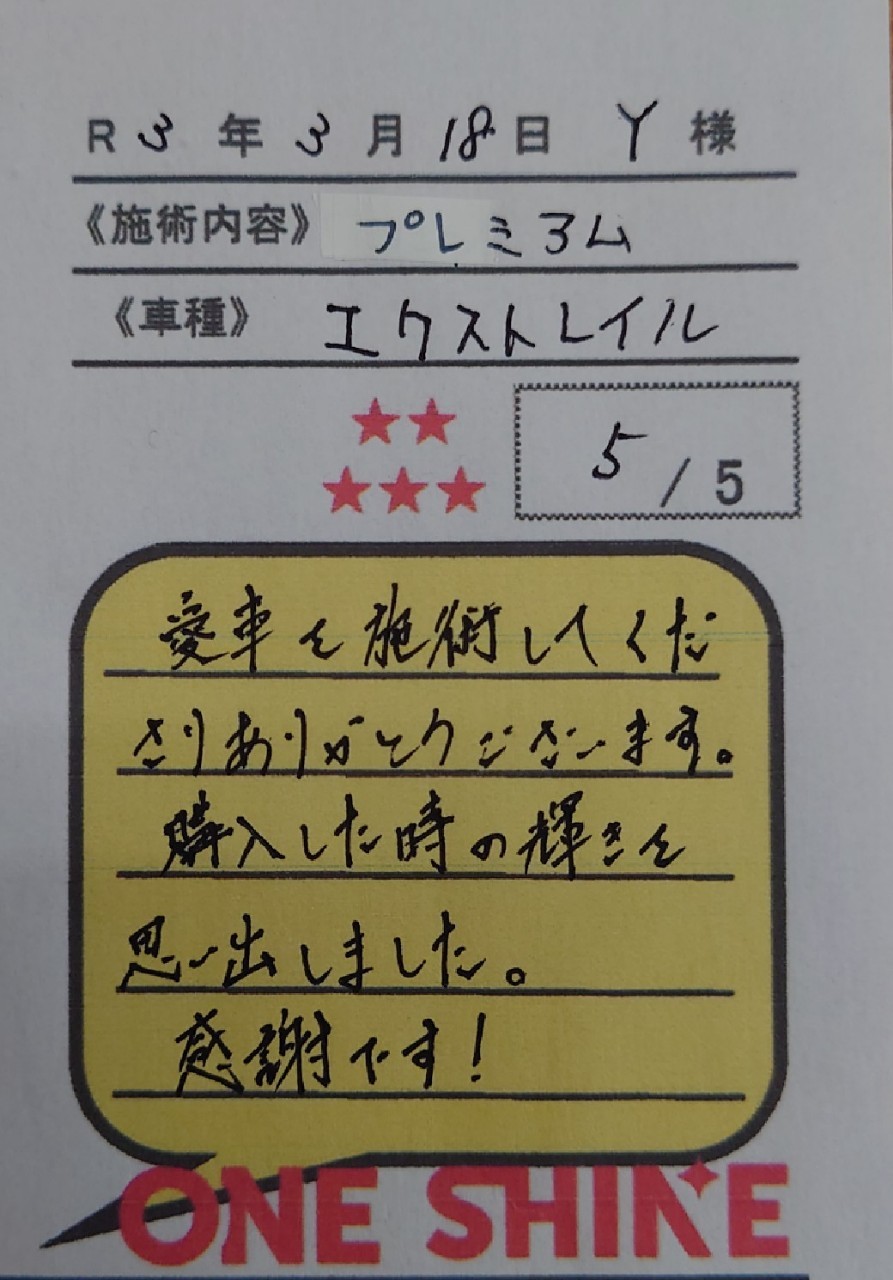 R 3 年 3 月 18 日 Y 様
《施術内容》 プレミアム
《車種》 エクストレイル
5 / 5
愛車を施術してくだ
さりありがとうございます。
購入した時の輝きを
思い出しました。
感謝です!
ONE SHINE